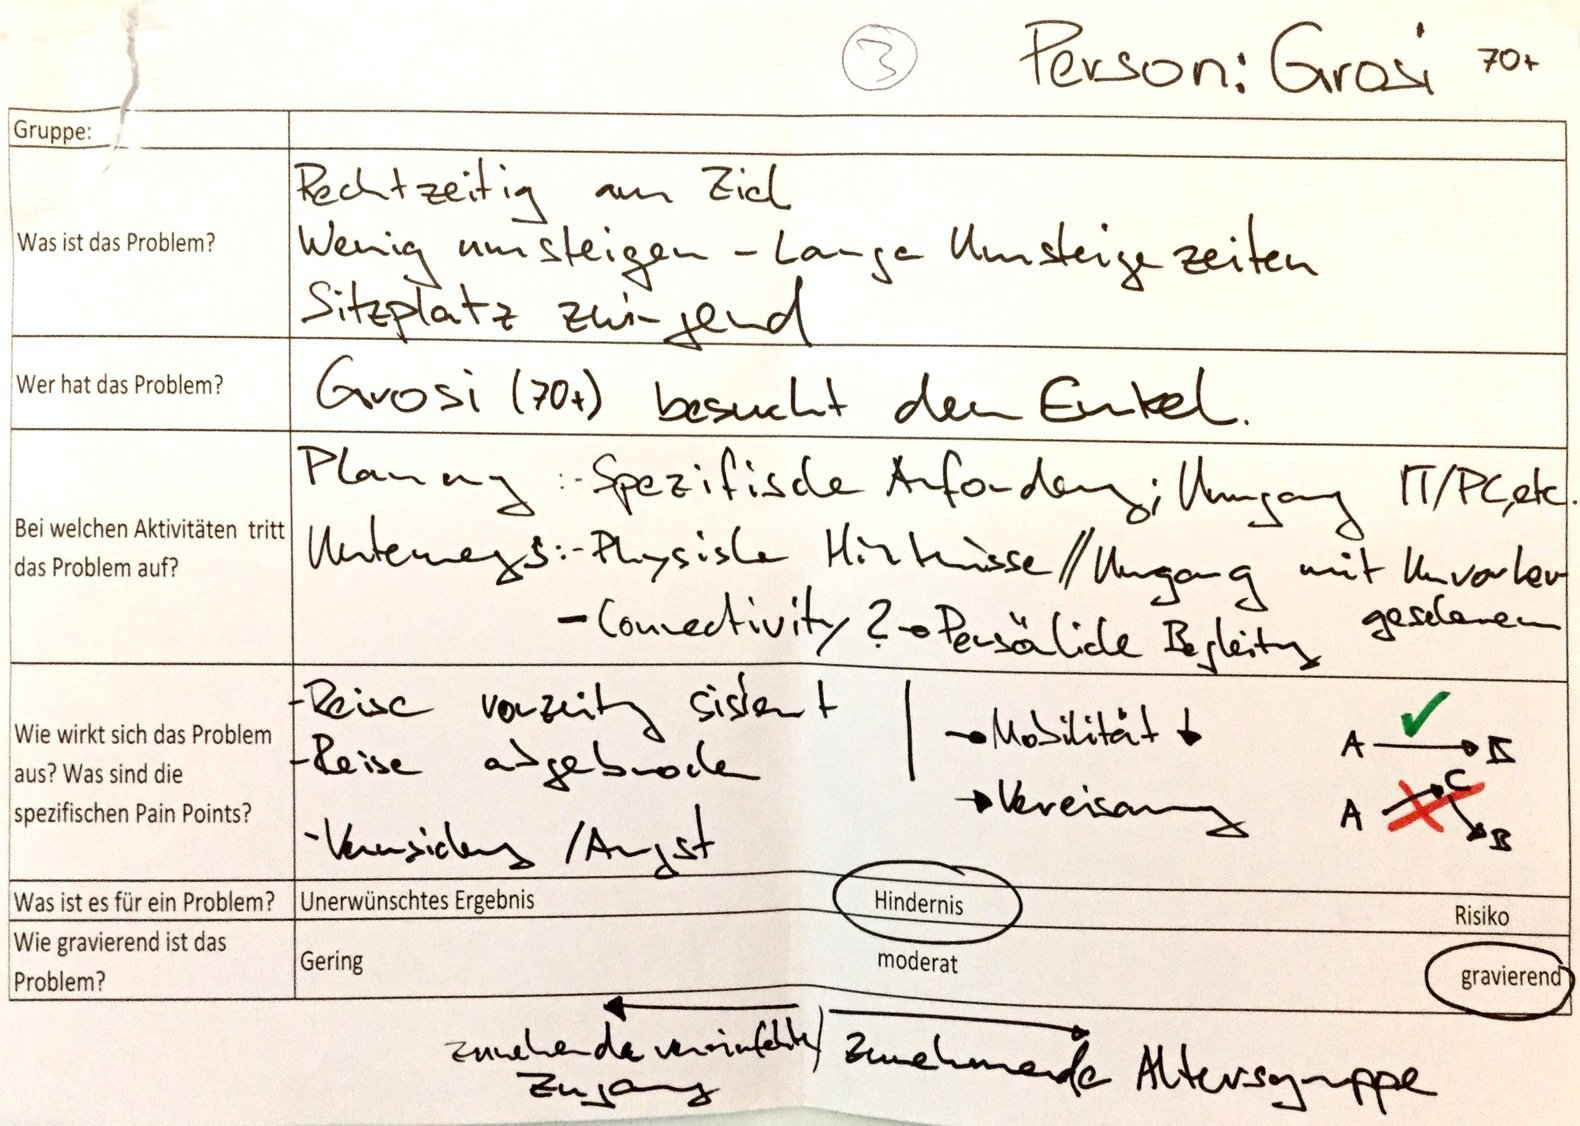 3 Person: Grosi 70+
Gruppe:
Was ist das Problem?
Rechtzeitig am Ziel
Wenig umsteigen - Lange Umsteigezeiten
Sitzplatz zwingend
Wer hat das Problem?
Grosi (70+) besucht den Enkel.
Bei welchen Aktivitäten tritt
das Problem auf?
Planung :- Spezifische Anforderung; Umgang IT/PC, etc.
Unterwegs:- Physische Hindernisse // Umgang mit Unvorher-
gesehenem
- Connectivity? → Persönliche Begleitung
Wie wirkt sich das Problem
aus? Was sind die
spezifischen Pain Points?
- Reise vorzeitig sistiert
- Reise abgebrochen
- Verunsicherung / Angst
→ Mobilität ↓
→ Vereisamung
A → B
A → C → B
Was ist es für ein Problem?
Unerwünschtes Ergebnis Hindernis Risiko
Wie gravierend ist das
Problem?
Gering moderat gravierend
zunehmende vereinfachter
Zugang
Zunehmende Altersgruppe